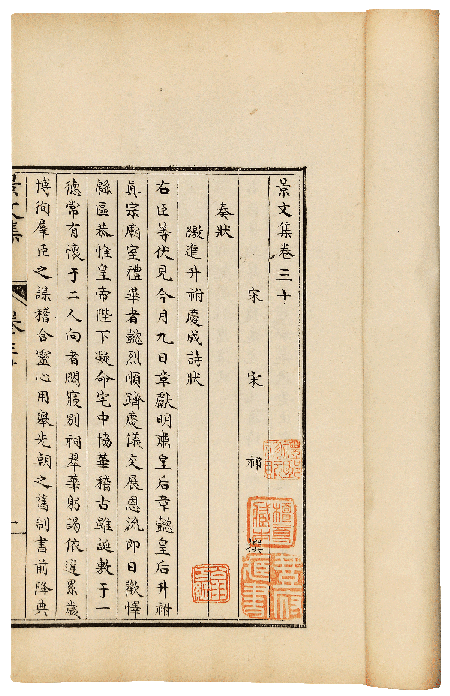 景文集卷三十
宋 宋 祁 撰
奏狀
進升祔慶成詩狀
右臣等伏見今月九日章獻明肅皇后章懿皇后升祔
真宗廟室禮畢者懿烈順躋慶議交展恩流即日歡懌
緜區恭惟皇帝陛下凝命宅中協華稽古雖誕敷于一
德常有懷于二人向者閟寢別祠翠華躬謁依違累歲
博徇羣臣之謀稽合靈心用舉先朝之舊制書前降典
景文集